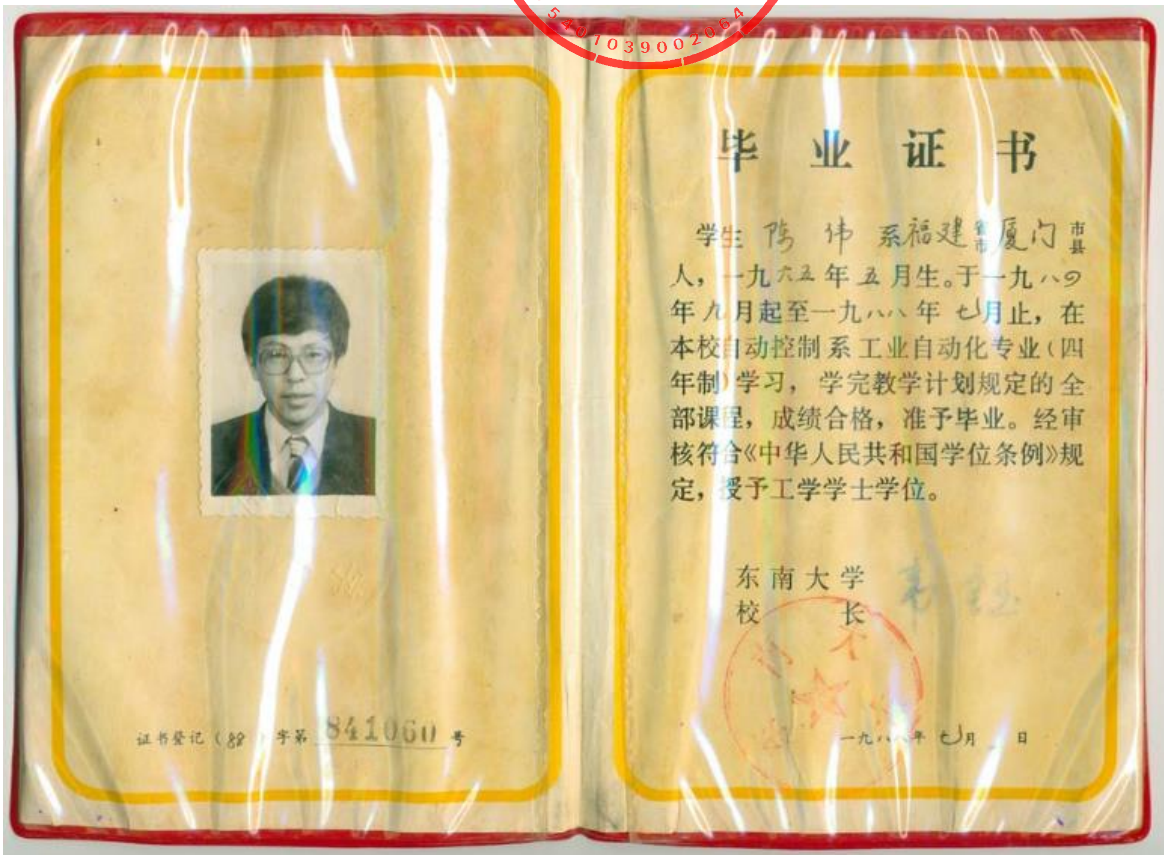 5401039002064
证书登记(88)字第 841060 号
毕业证书
学生 陈伟 系福建省市厦门市县
人,一九六五年五月生。于一九八四
年九月起至一九八八年七月止,在
本校自动控制系工业自动化专业(四
年制)学习,学完教学计划规定的全
部课程,成绩合格,准予毕业。经审
核符合《中华人民共和国学位条例》规
定,授予工学学士学位。
东南大学
校长
一九八八年七月 日